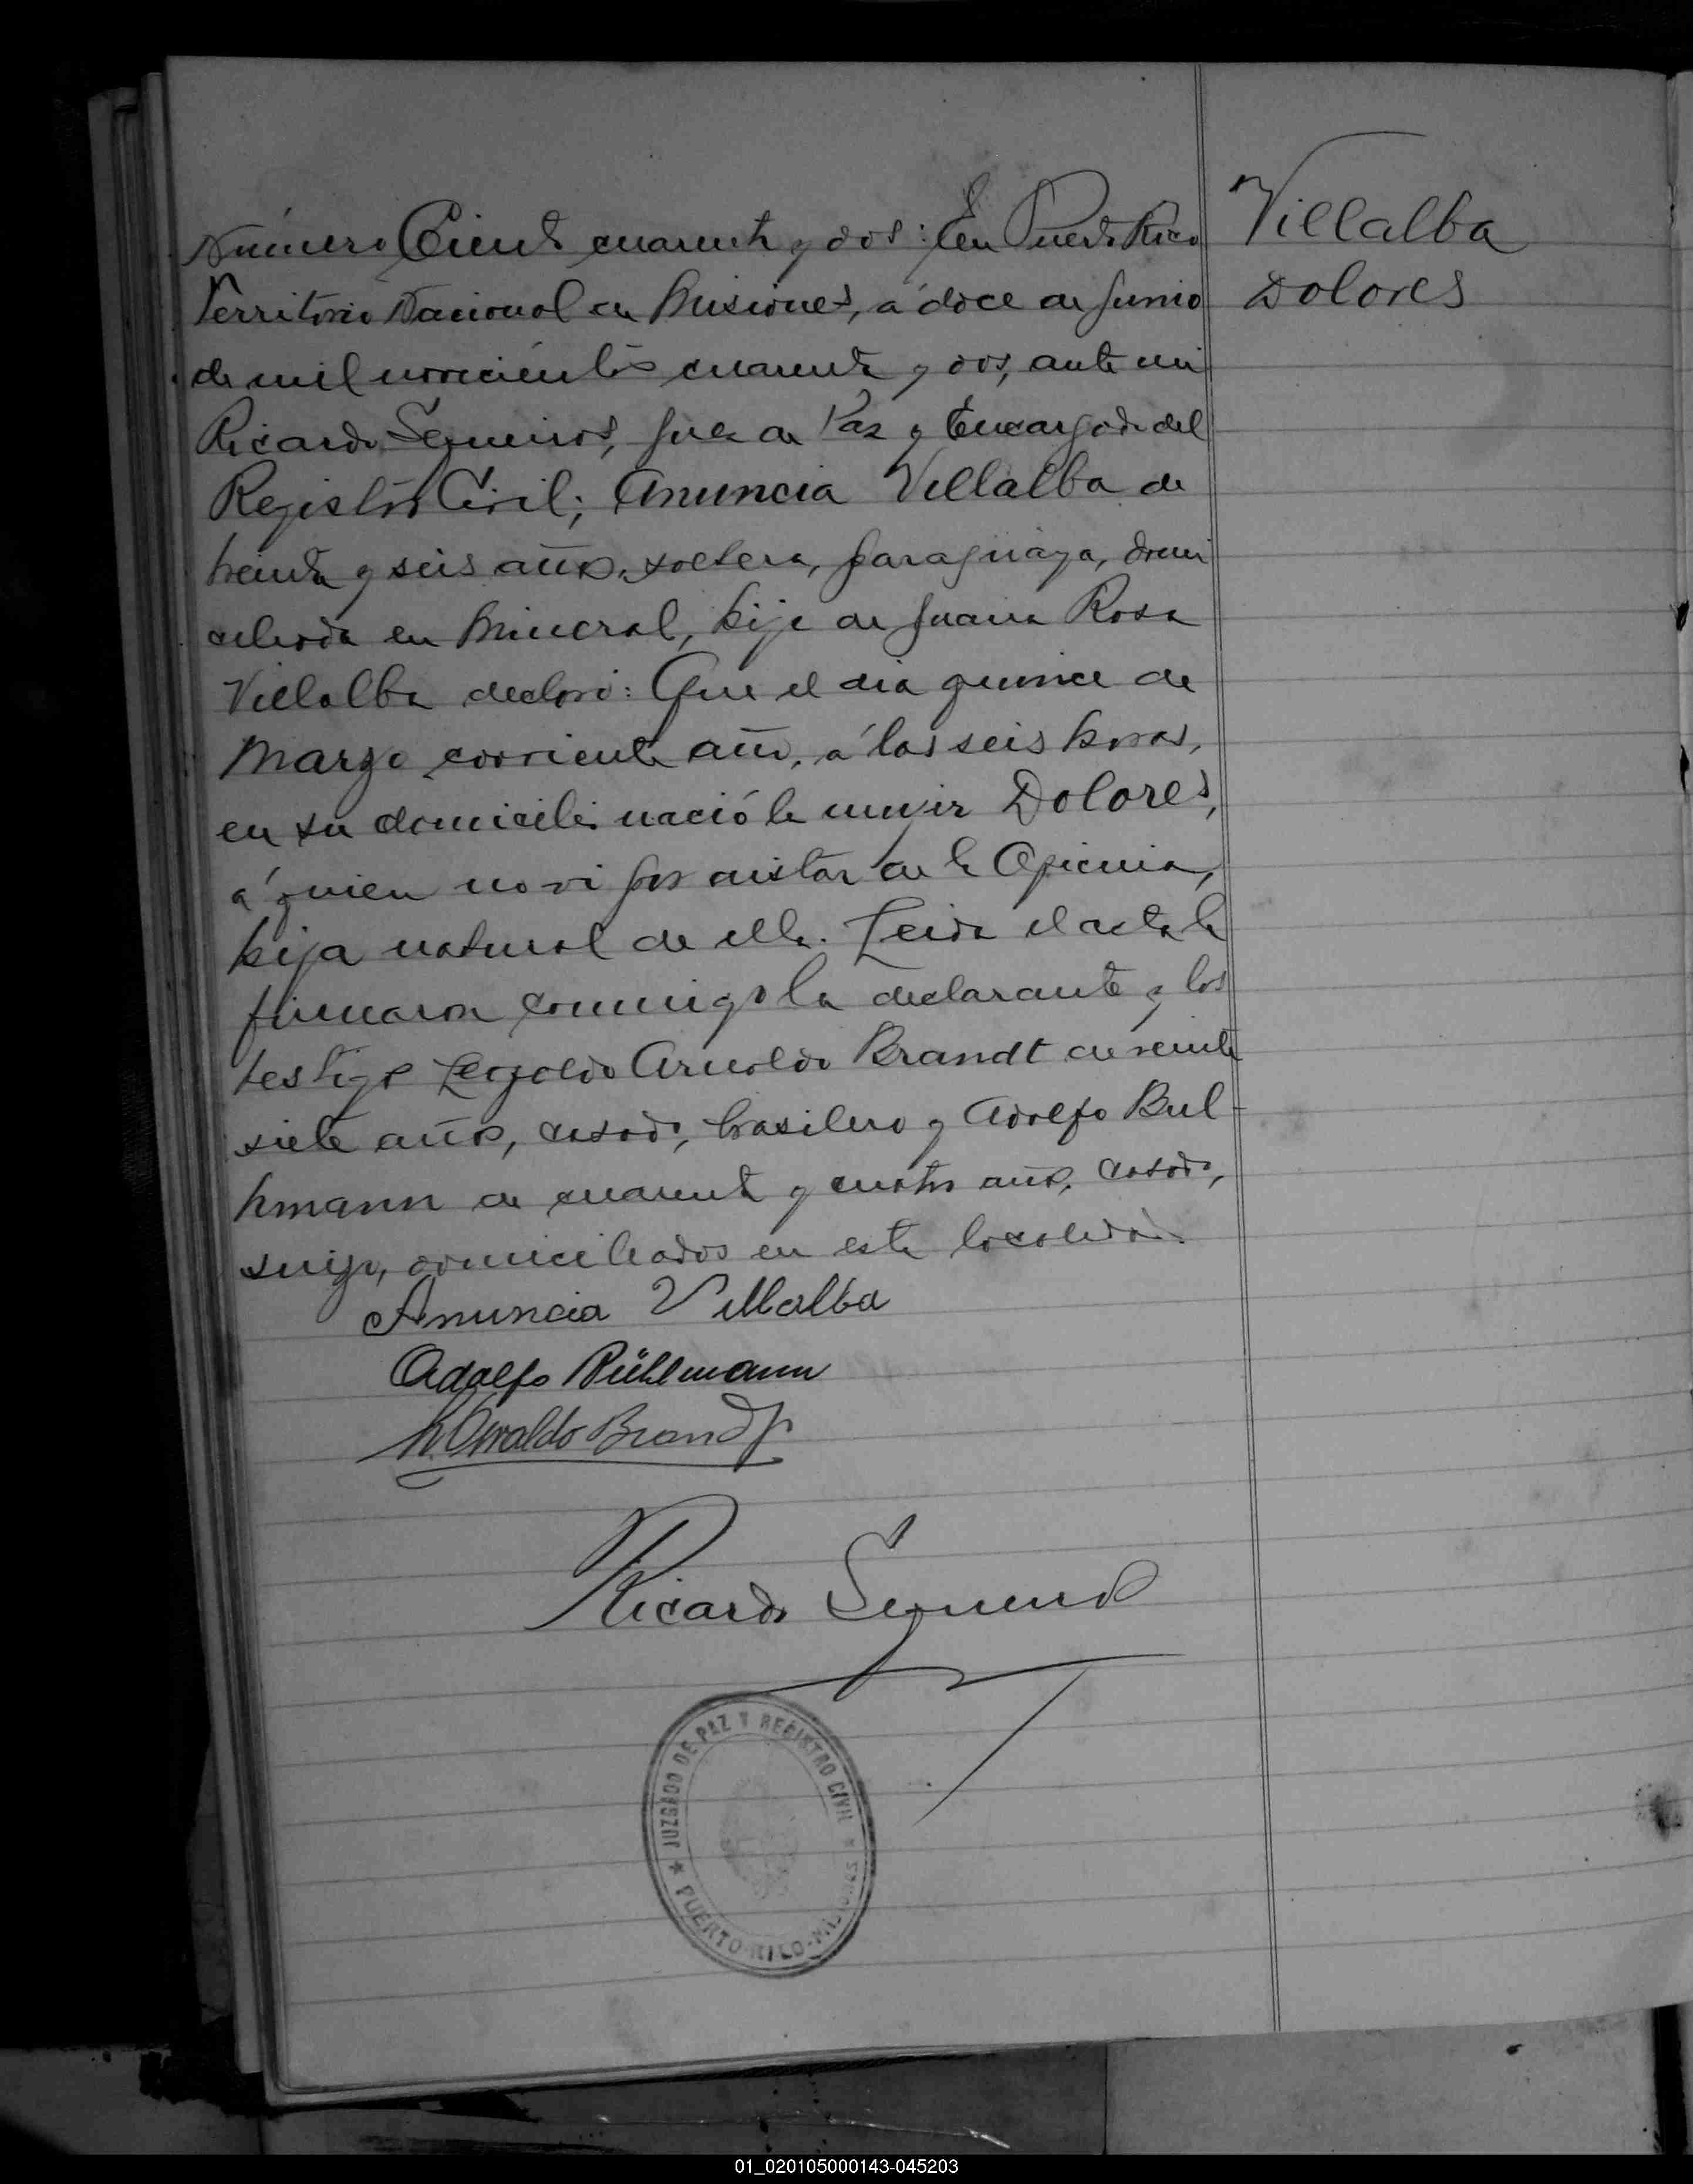 Número Ciento cuarenta y dos: En Puerto Rico
Territorio Nacional de Misiones, á doce de Junio
de mil novecientos cuarenta y dos, ante mi
Ricardo Sequeiros, Juez de Paz y Encargado del
Registro Civil; Anuncia Villalba de
treinta y seis años, soltera, paraguaya, domi
ciliada en Mineral, hija de Juana Rosa
Villalba declaró: Que el dia quince de
Marzo corriente año, á las seis horas,
en su domicilio nació la mujer Dolores,
á quien no vi por distar de la Oficina,
hija natural de ella. Leida el acta la
firmaron conmigo la declarante y los
testigos Leopoldo Arnoldo Brandt de veinte
siete años, casado, brasilero y Adolfo Bul-
hmann de cuarenta y cuatro años, casado,
suizo, domiciliados en esta localidad.
Anuncia Villalba
Adolfo Bühlmann
Oswaldo Brandt
Ricardo Sequeiros
JUZGADO DE PAZ Y REGISTRO CIVIL
PUERTO RICO-MISIONES
Villalba
Dolores
01_020105000143-045203